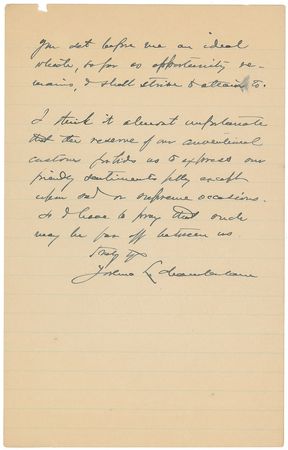 you set before me an ideal
which, so far as opportunity re-
mains, I shall strive to attain to.
I think it almost unfortunate
that the reserve of our conventional
custom forbids us to express our
friendly sentiments fully except
upon sad or supreme occasions.
So I have to pray that such
may be far off between us.
Truly yrs
Joshua L. Chamberlain